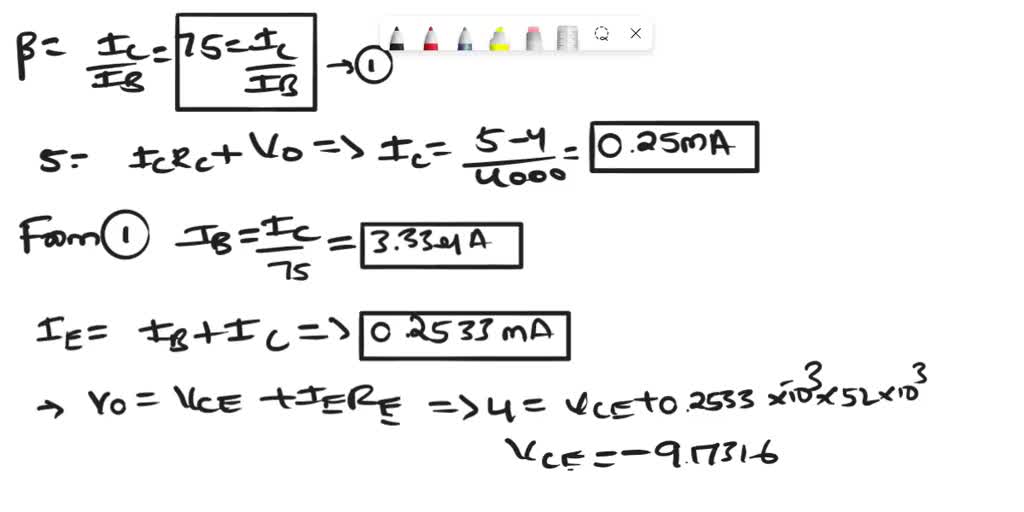 β = IC/IB = 75 = IC/IB → ①
5 = ICRC + VO => IC = 5-4/4000 = 0.25mA
From ① IB = IC/75 = 3.33μA
IE = IB + IC => 0.2533 mA
→ VO = VCE + IERE => 4 = VCE + 0.2533 × 10^-3 × 52 × 10^3
VCE = -9.17316